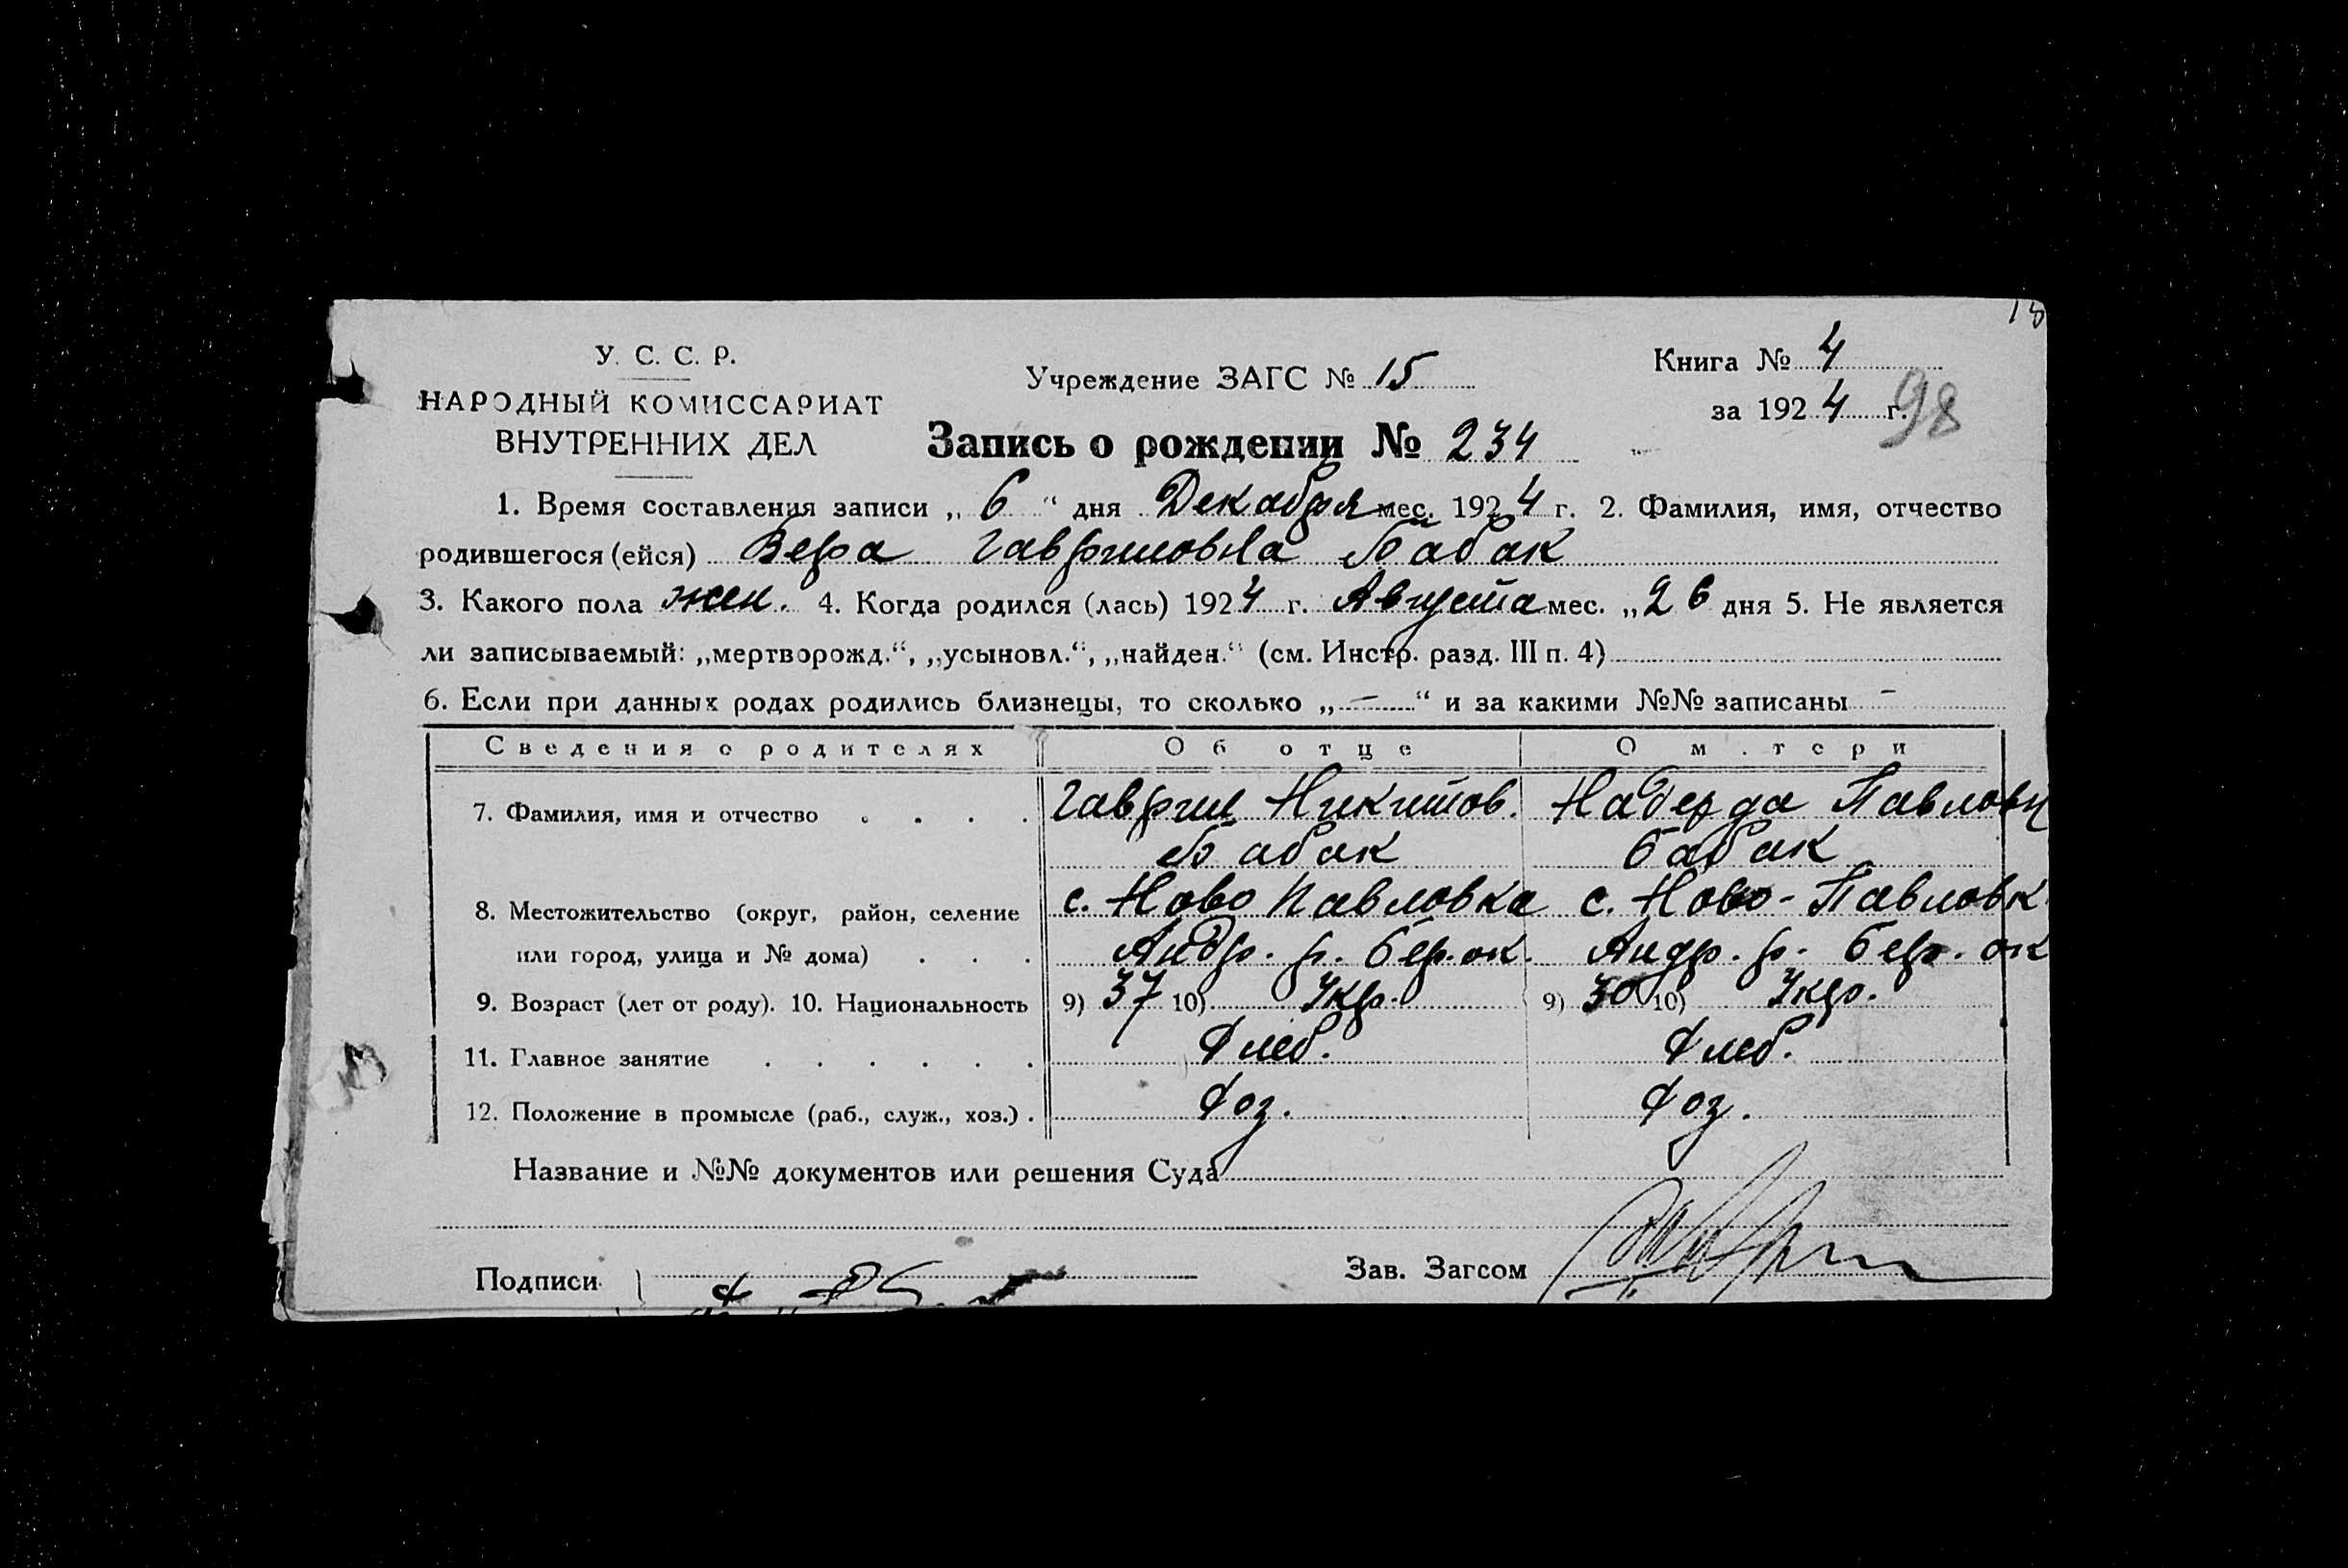 18
У. С. С. Р.
НАРОДНЫЙ КОМИССАРИАТ
ВНУТРЕННИХ ДЕЛ
Учреждение ЗАГС № 15
Книга № 4
за 1924 г.
98
Запись о рождении № 234
1. Время составления записи „ 6 “ дня Декабря мес. 1924 г. 2. Фамилия, имя, отчество
родившегося (ейся) Вера Гавриловна Бабак
3. Какого пола жен. 4. Когда родился (лась) 1924 г. Августа мес. „26 дня 5. Не является
ли записываемый: „мертворожд.“, „усыновл.“, „найден.“ (см. Инстр. разд. III п. 4)
6. Если при данных родах родились близнецы, то сколько „ — “ и за какими №№ записаны —
Сведения о родителях Об отце О м.тери
7. Фамилия, имя и отчество . . . . Гаврил Никитов. Надежда Павловн
Бабак Бабак
8. Местожительство (округ, район, селение с. Ново Павловка с. Ново-Павловк
или город, улица и № дома) . . . Андр. р. Бер. ок. Андр. р. Бер. ок
9. Возраст (лет от роду). 10. Национальность 9) 37 10) Укр. 9) 30 10) Укр.
11. Главное занятие . . . . . . Хлеб. Хлеб.
12. Положение в промысле (раб., служ., хоз.) . Хоз. Хоз.
Название и №№ документов или решения Суда
Подписи Зав. Загсом